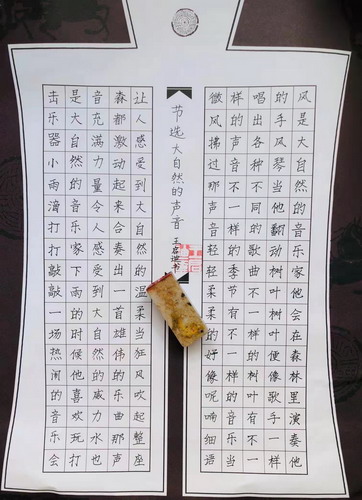 风是大自然的音乐家他会在森林里演奏他
的手风琴当他翻动树叶树叶便像歌手一样
唱出各种不同的歌曲不一样的树叶有不一
样的声音不一样的季节有不一样的音乐当
微风拂过那声音轻轻柔柔的好像呢喃细语
节选大自然的声音
让人感受到大自然的温柔当狂风吹起整座
森都激动起来合奏出一首雄伟的乐曲那声
音充满力量令人感受到大自然的威力水也
是大自然的音乐家下雨的时候他喜欢玩打
击乐器小雨滴打打敲敲一场热闹的音乐会